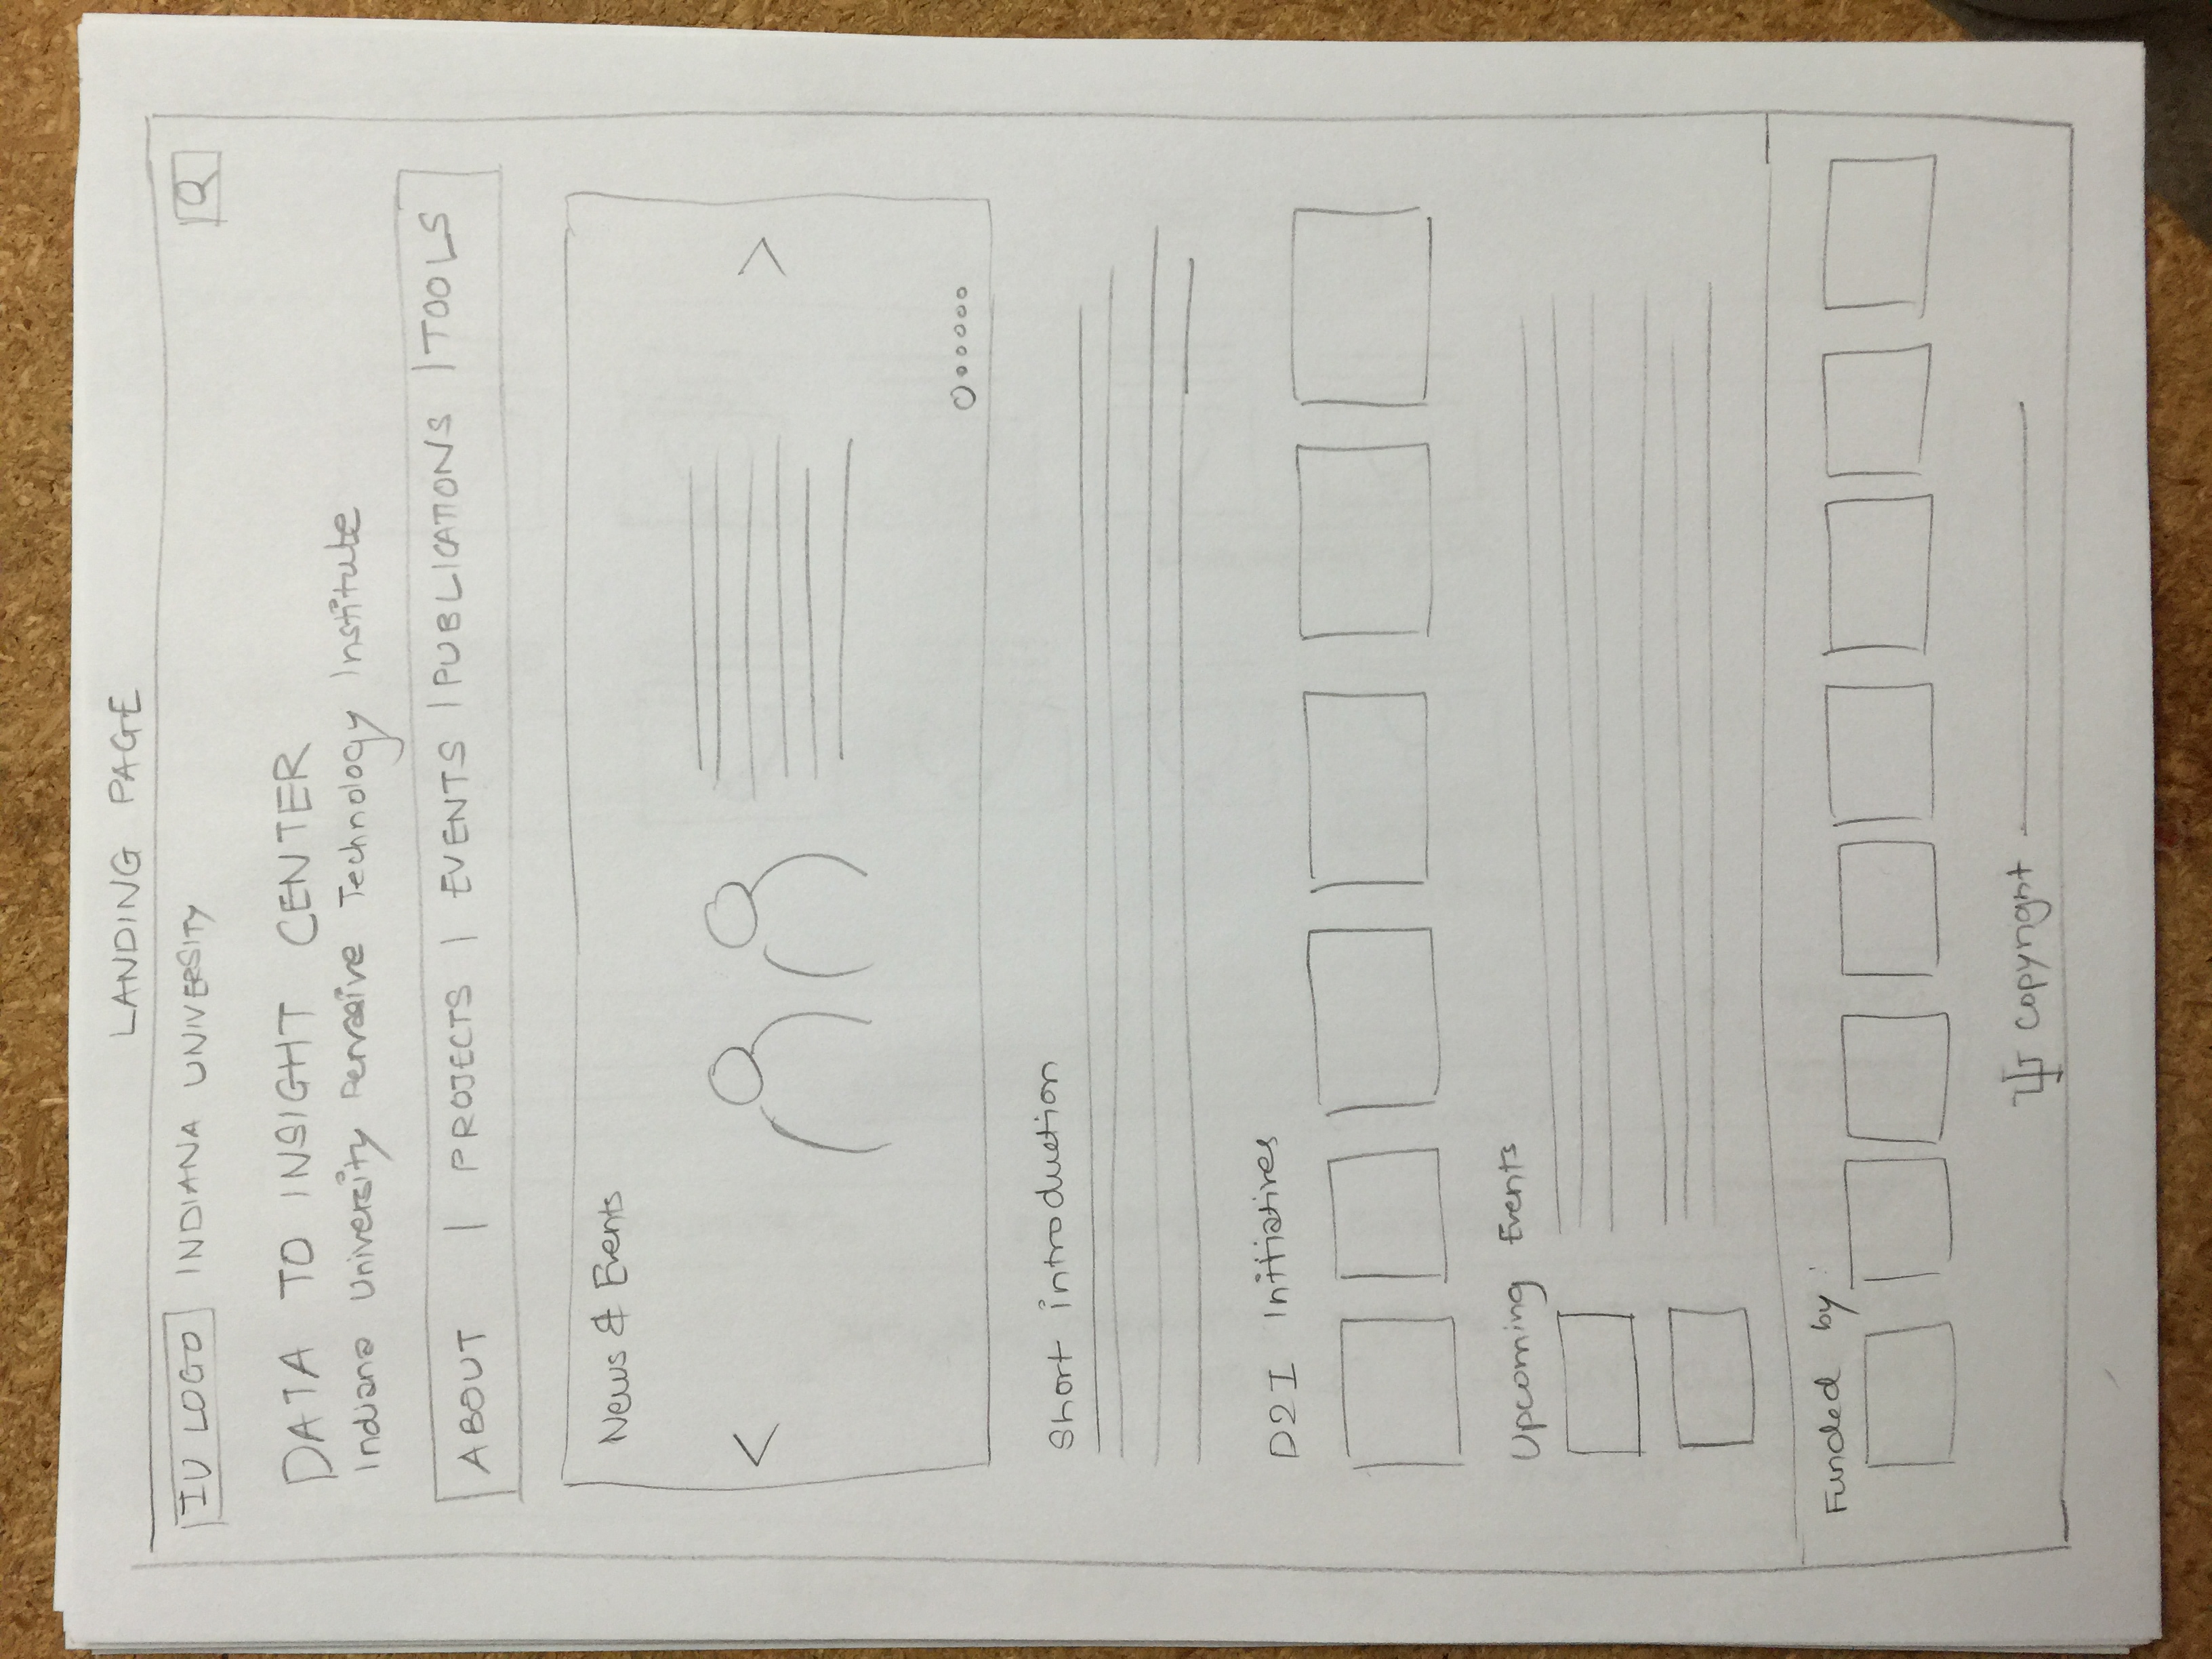 LANDING PAGE
IU LOGO INDIANA UNIVERSITY
DATA TO INSIGHT CENTER
Indiana University Pervasive Technology Institute
ABOUT | PROJECTS | EVENTS | PUBLICATIONS | TOOLS
News & Events
< >
Short introduction
D2I Initiatives
Upcoming Events
Funded by:
Copyright